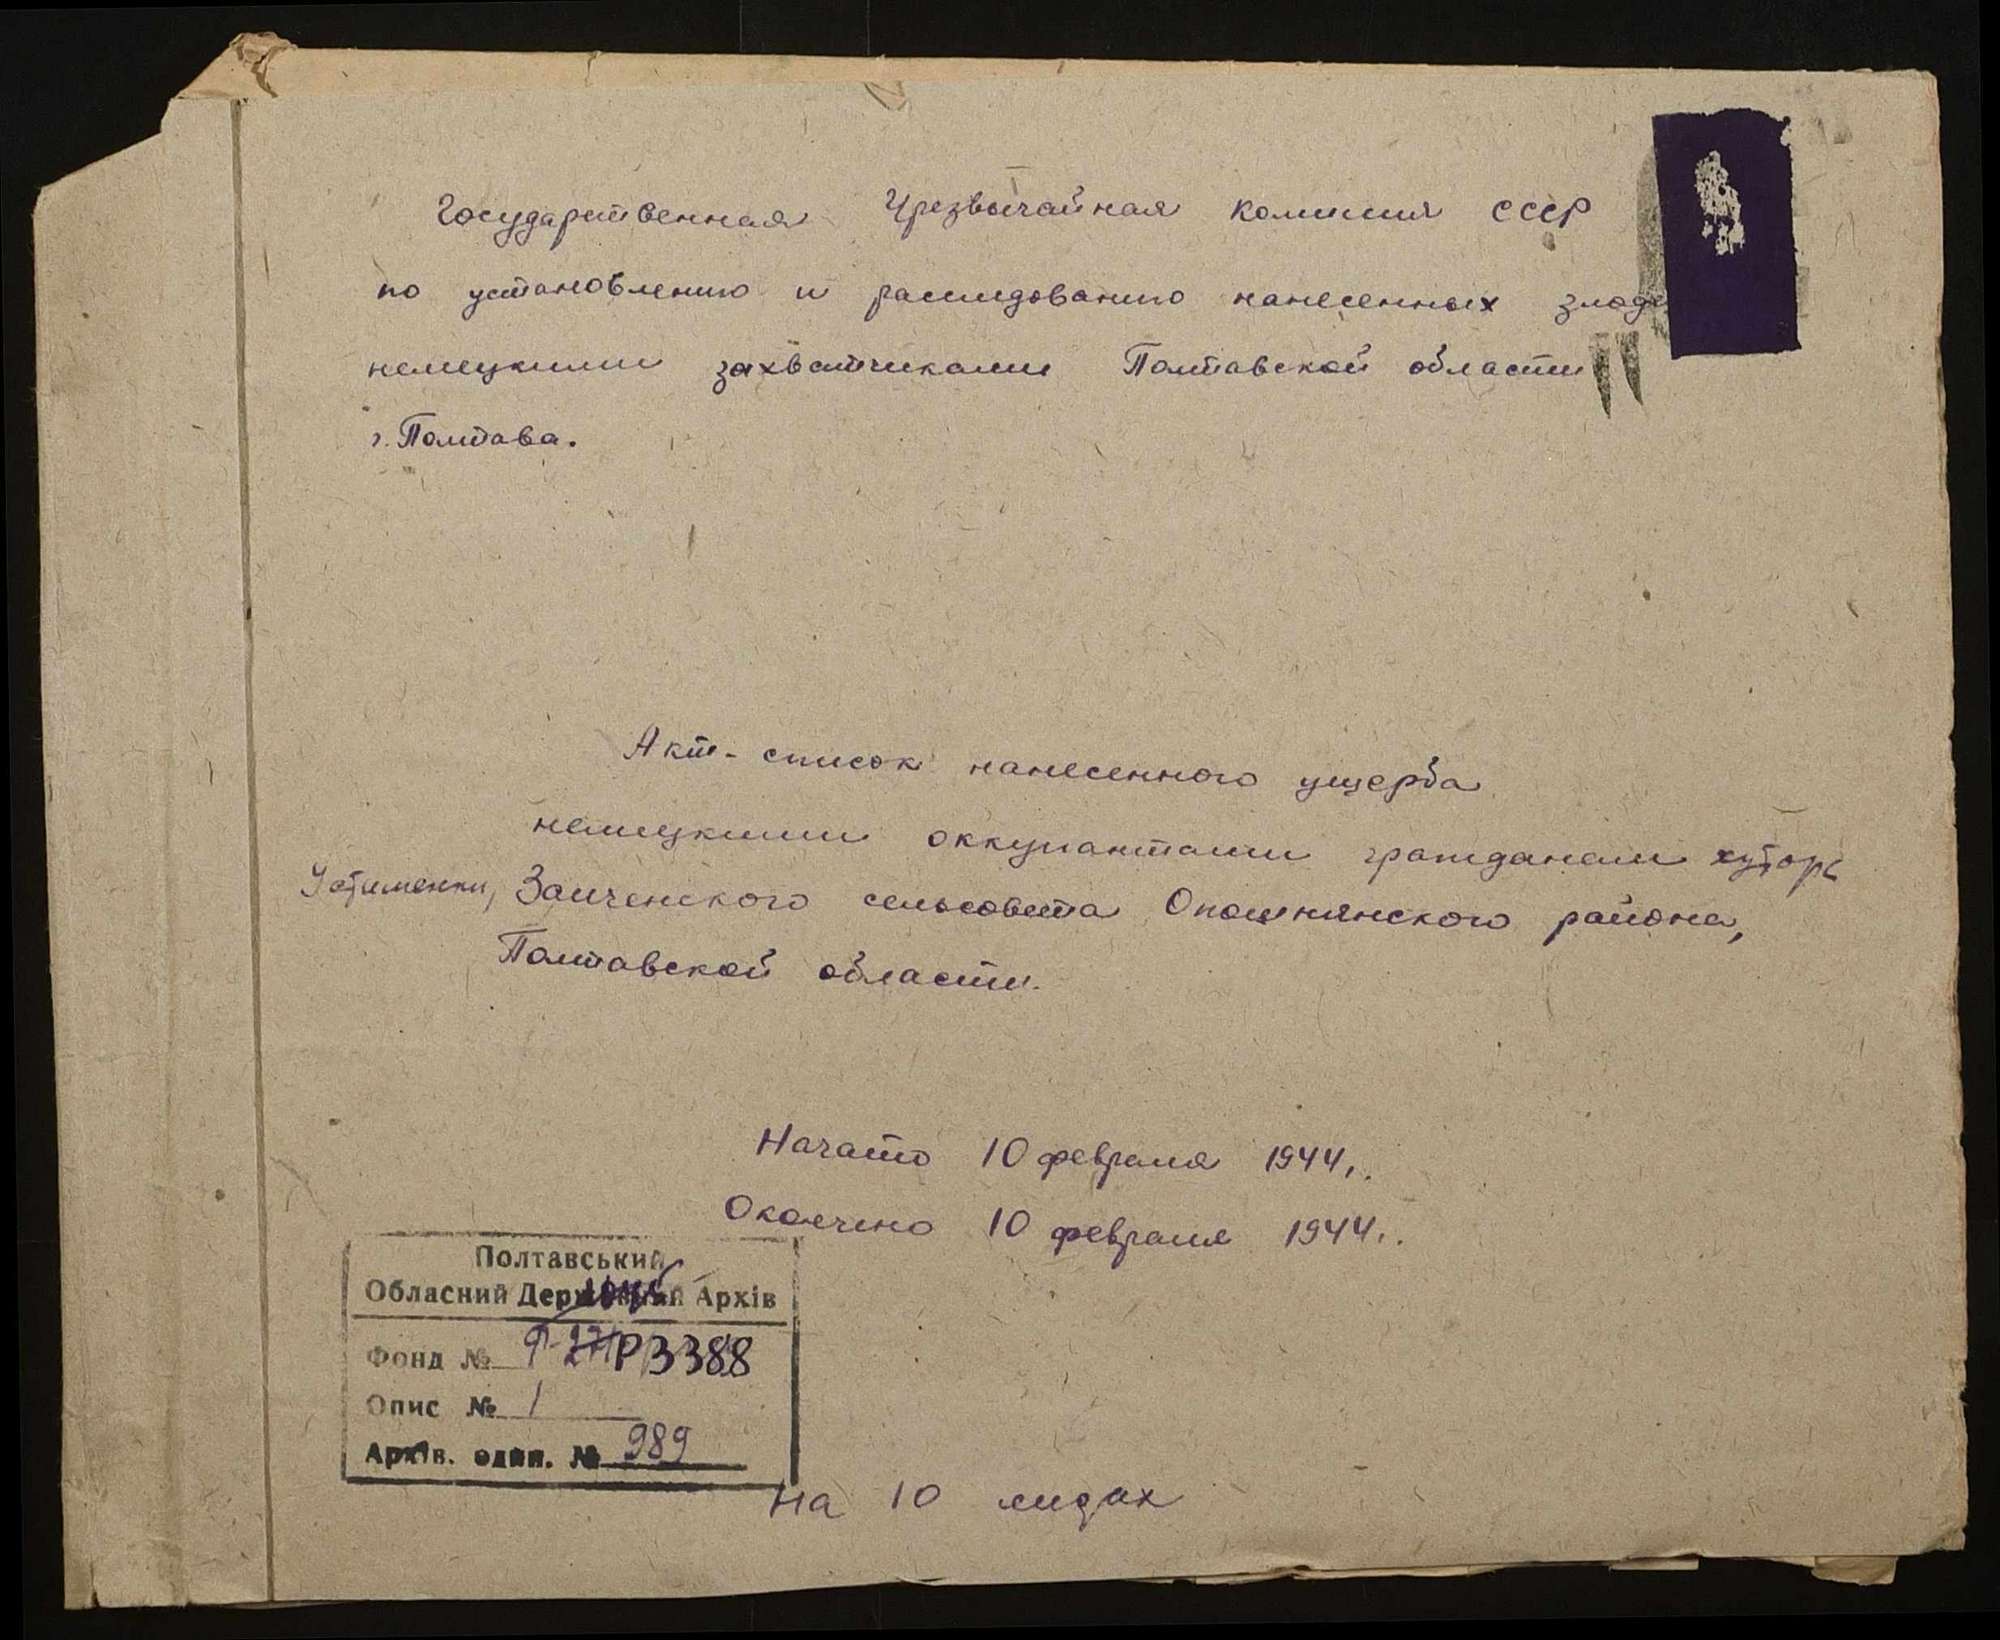 Государственная Чрезвычайная комиссия СССР
по установлению и расследованию нанесенных злоде
немецкими захватчиками Полтавской области
г. Полтава.
Акт-список нанесенного ущерба
немецкими оккупантами гражданам хутора
Устименки, Заиченского сельсовета Опошнянского района,
Полтавской области.
Начато 10 февраля 1944г.
Окончено 10 февраля 1944г.
Полтавський
Обласний Державний Архів
Фонд № Р3388
Опис № 1
Архів. один. № 989
На 10 листах